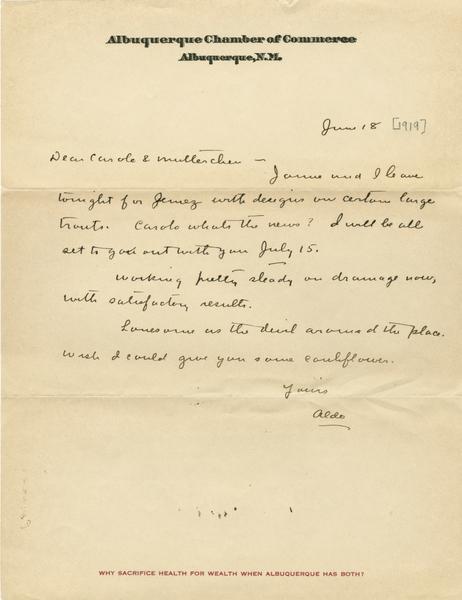 Albuquerque Chamber of Commerce
Albuquerque, N.M.
June 18 [1919]
Dear Carolo & Mutterchen —
Jamie and I leave
tonight for Jemez with designs on certain large
trouts. Carolo whats the news? I will be all
set to go out with you July 15.
Working pretty steady on drainage now,
with satisfactory results.
Lonesome as the devil around the place.
Wish I could give you some cauliflower.
Yours
Aldo
WHY SACRIFICE HEALTH FOR WEALTH WHEN ALBUQUERQUE HAS BOTH?